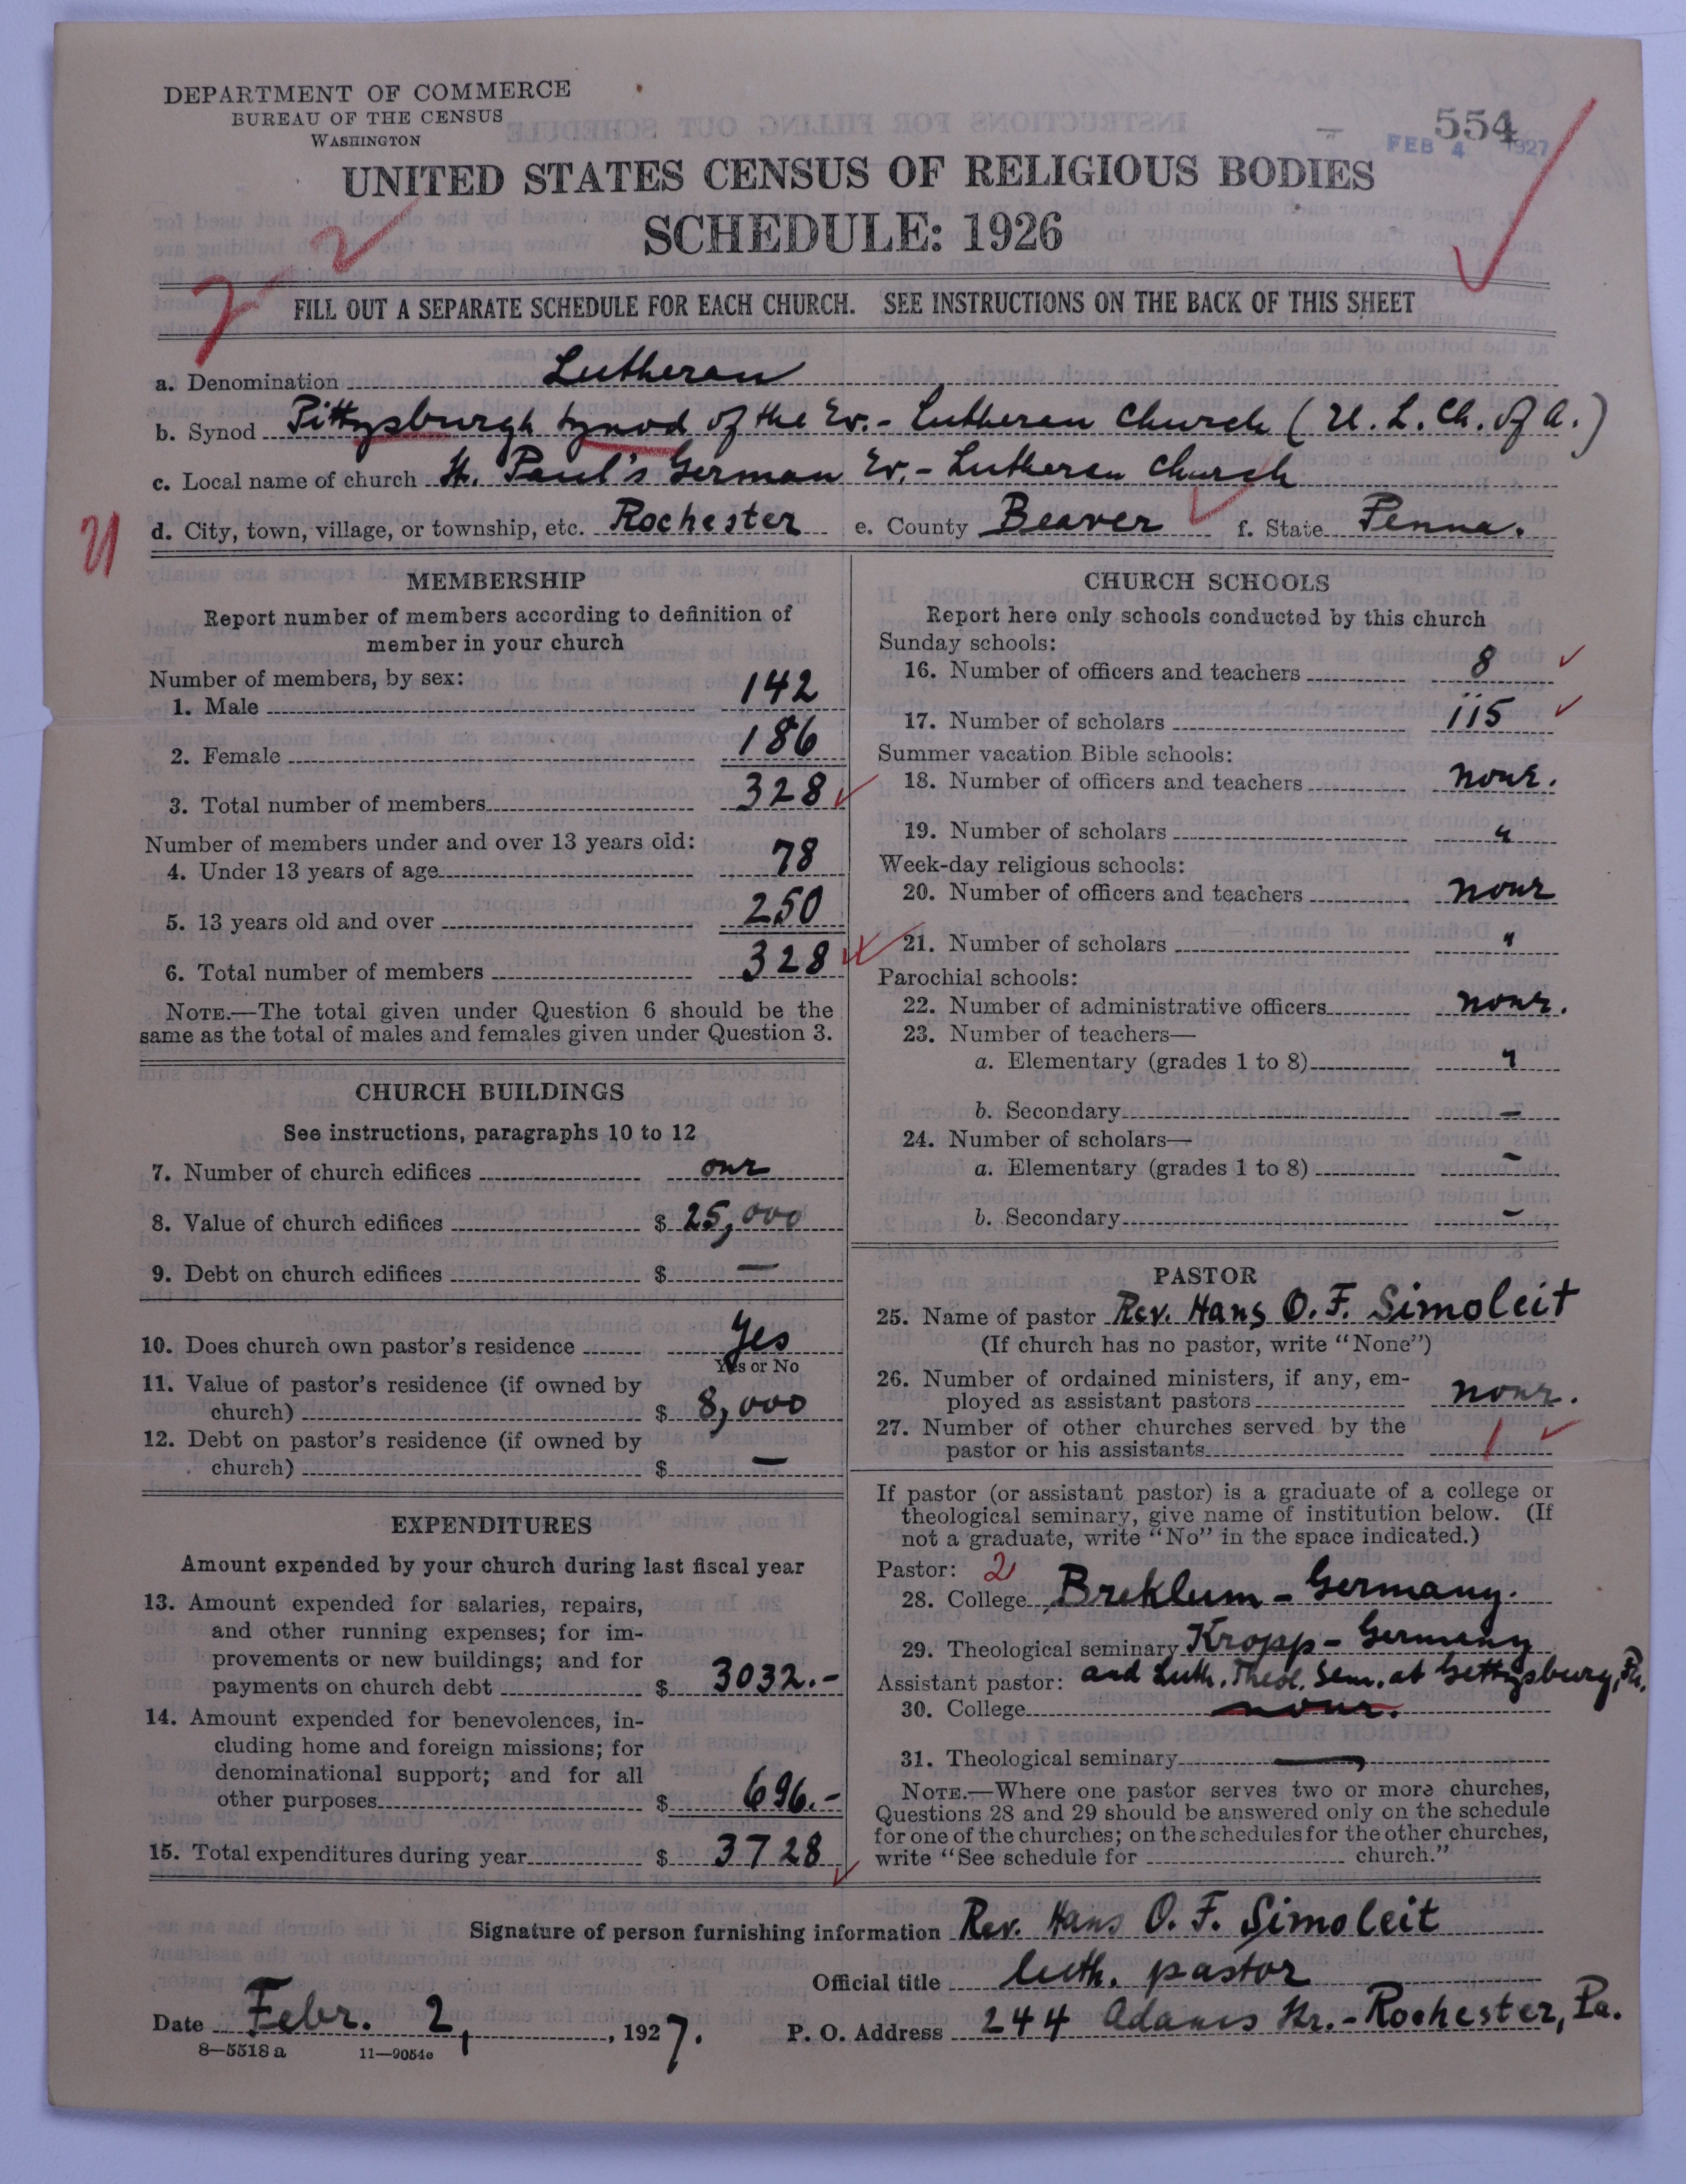 DEPARTMENT OF COMMERCE
BUREAU OF THE CENSUS
WASHINGTON
554
FEB 4 1927
UNITED STATES CENSUS OF RELIGIOUS BODIES
SCHEDULE: 1926
2 2
FILL OUT A SEPARATE SCHEDULE FOR EACH CHURCH. SEE INSTRUCTIONS ON THE BACK OF THIS SHEET
a. Denomination Lutheran
b. Synod Pittsburgh Synod of the Ev.- Lutheran Church (U. L. Ch. of A.)
c. Local name of church St. Paul's German Ev.- Lutheran Church
d. City, town, village, or township, etc. Rochester e. County Beaver f. State Penna.
MEMBERSHIP
Report number of members according to definition of
member in your church
Number of members, by sex:
1. Male 142
2. Female 186
3. Total number of members 328
Number of members under and over 13 years old:
4. Under 13 years of age 78
5. 13 years old and over 250
6. Total number of members 328
NOTE.—The total given under Question 6 should be the
same as the total of males and females given under Question 3.
CHURCH BUILDINGS
See instructions, paragraphs 10 to 12
7. Number of church edifices one
8. Value of church edifices $ 25,000
9. Debt on church edifices $ —
10. Does church own pastor's residence Yes
Yes or No
11. Value of pastor's residence (if owned by
church) $ 8,000
12. Debt on pastor's residence (if owned by
church) $ —
EXPENDITURES
Amount expended by your church during last fiscal year
13. Amount expended for salaries, repairs,
and other running expenses; for im-
provements or new buildings; and for
payments on church debt $ 3032.-
14. Amount expended for benevolences, in-
cluding home and foreign missions; for
denominational support; and for all
other purposes $ 696.-
15. Total expenditures during year $ 3728
CHURCH SCHOOLS
Report here only schools conducted by this church
Sunday schools:
16. Number of officers and teachers 8
17. Number of scholars 115
Summer vacation Bible schools:
18. Number of officers and teachers none.
19. Number of scholars "
Week-day religious schools:
20. Number of officers and teachers none
21. Number of scholars "
Parochial schools:
22. Number of administrative officers none.
23. Number of teachers—
a. Elementary (grades 1 to 8) "
b. Secondary —
24. Number of scholars—
a. Elementary (grades 1 to 8) —
b. Secondary —
PASTOR
25. Name of pastor Rev. Hans O. F. Simoleit
(If church has no pastor, write "None")
26. Number of ordained ministers, if any, em-
ployed as assistant pastors none.
27. Number of other churches served by the
pastor or his assistants 1
If pastor (or assistant pastor) is a graduate of a college or
theological seminary, give name of institution below. (If
not a graduate, write "No" in the space indicated.)
Pastor: 2
28. College Breklum - Germany.
29. Theological seminary Kropp - Germany
Assistant pastor: and Luth. Theol. Sem. at Gettysburg, Pa.
30. College none.
31. Theological seminary —
NOTE.—Where one pastor serves two or more churches,
Questions 28 and 29 should be answered only on the schedule
for one of the churches; on the schedules for the other churches,
write "See schedule for church."
Signature of person furnishing information Rev. Hans O. F. Simoleit
Official title luth. pastor
Date Febr. 2, 1927. P. O. Address 244 Adams Str. - Rochester, Pa.
8—5518 a 11—9054c